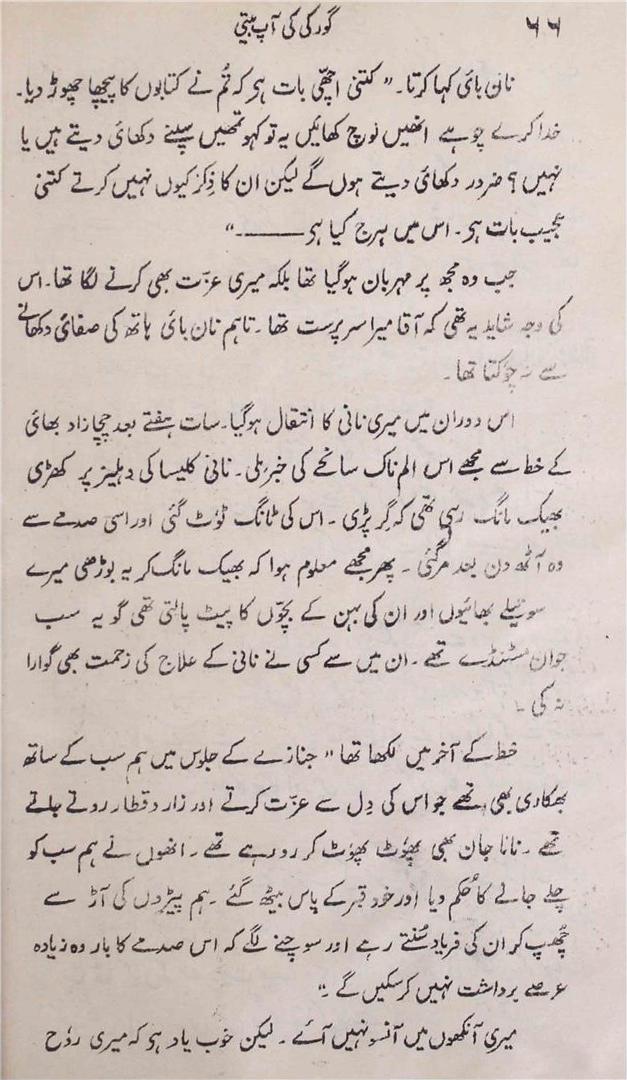 ۶۶ گورکی کی آپ بیتی
نان بائی کہا کرتا۔ ”کتنی اچھی بات ہو کہ تُم نے کتابوں کا پیچھا چھوڑ دیا۔
خدا کرے چوہے انھیں نوچ کھائیں یہ تو کہو تمھیں سپنے دکھائی دیتے ہیں یا
نہیں؟ ضرور دکھائی دیتے ہوں گے لیکن ان کا ذِکر کیوں نہیں کرتے کتنی
عجیب بات ہو۔ اس میں ہرج کیا ہو ———۔“
جب وہ مجھ پر مہربان ہوگیا تھا بلکہ میری عزّت بھی کرنے لگا تھا۔ اس
کی وجہ شاید یہ تھی کہ آقا میرا سرپرست تھا۔ تاہم نان بائی ہاتھ کی صفائی دکھانے
سے نہ چوکتا تھا۔
اس دوران میں میری نانی کا انتقال ہوگیا۔ سات ہفتے بعد چچازاد بھائی
کے خط سے مجھے اس الم ناک سانحے کی خبر ملی۔ نانی کلیسا کی دہلیز پر کھڑی
بھیک مانگ رہی تھی کہ گِر پڑی۔ اس کی ٹانگ ٹوٹ گئی اور اسی صدمے سے
وہ آٹھ دن بعد مرگئی۔ پھر مجھے معلوم ہوا کہ بھیک مانگ کر یہ بوڑھی میرے
سوتیلے بھائیوں اور ان کی بہن کے بچّوں کا پیٹ پالتی تھی گو یہ سب
جوان مشٹنڈے تھے۔ ان میں سے کسی نے نانی کے علاج کی زحمت بھی گوارا
نہ کی۔
خط کے آخر میں لکھا تھا ”جنازے کے جلوس میں ہم سب کے ساتھ
بھکاری بھی تھے جو اس کی دِل سے عزّت کرتے اور زار و قطار روتے جاتے
تھے۔ نانا جان بھی پھوٹ پھوٹ کر رو رہے تھے۔ انھوں نے ہم سب کو
چلے جانے کا حُکم دیا اور خود قبر کے پاس بیٹھ گئے۔ ہم پیڑوں کی آڑ سے
چُھپ کر ان کی فریاد سُنتے رہے اور سوچنے لگے کہ اس صدمے کا بار وہ زیادہ
عرصے برداشت نہیں کرسکیں گے۔“
میری آنکھوں میں آنسو نہیں آئے۔ لیکن خوب یاد ہو کہ میری روٗح